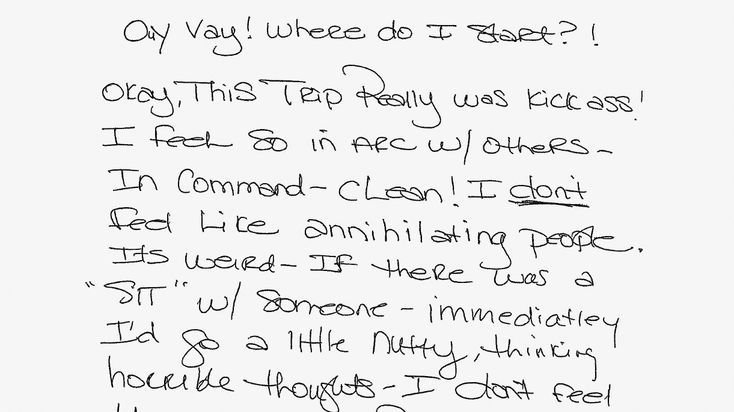 Oiy Vay! Where do I start?!
Okay, This Trip Really was kick ass!
I feel so in ARC w/ others –
In Command – Clean! I don't
feel like annihilating people.
Its weird – If there was a
"SIT" w/ someone – immediatley
I'd go a little nutty, thinking
horrible thoughts – I don't feel